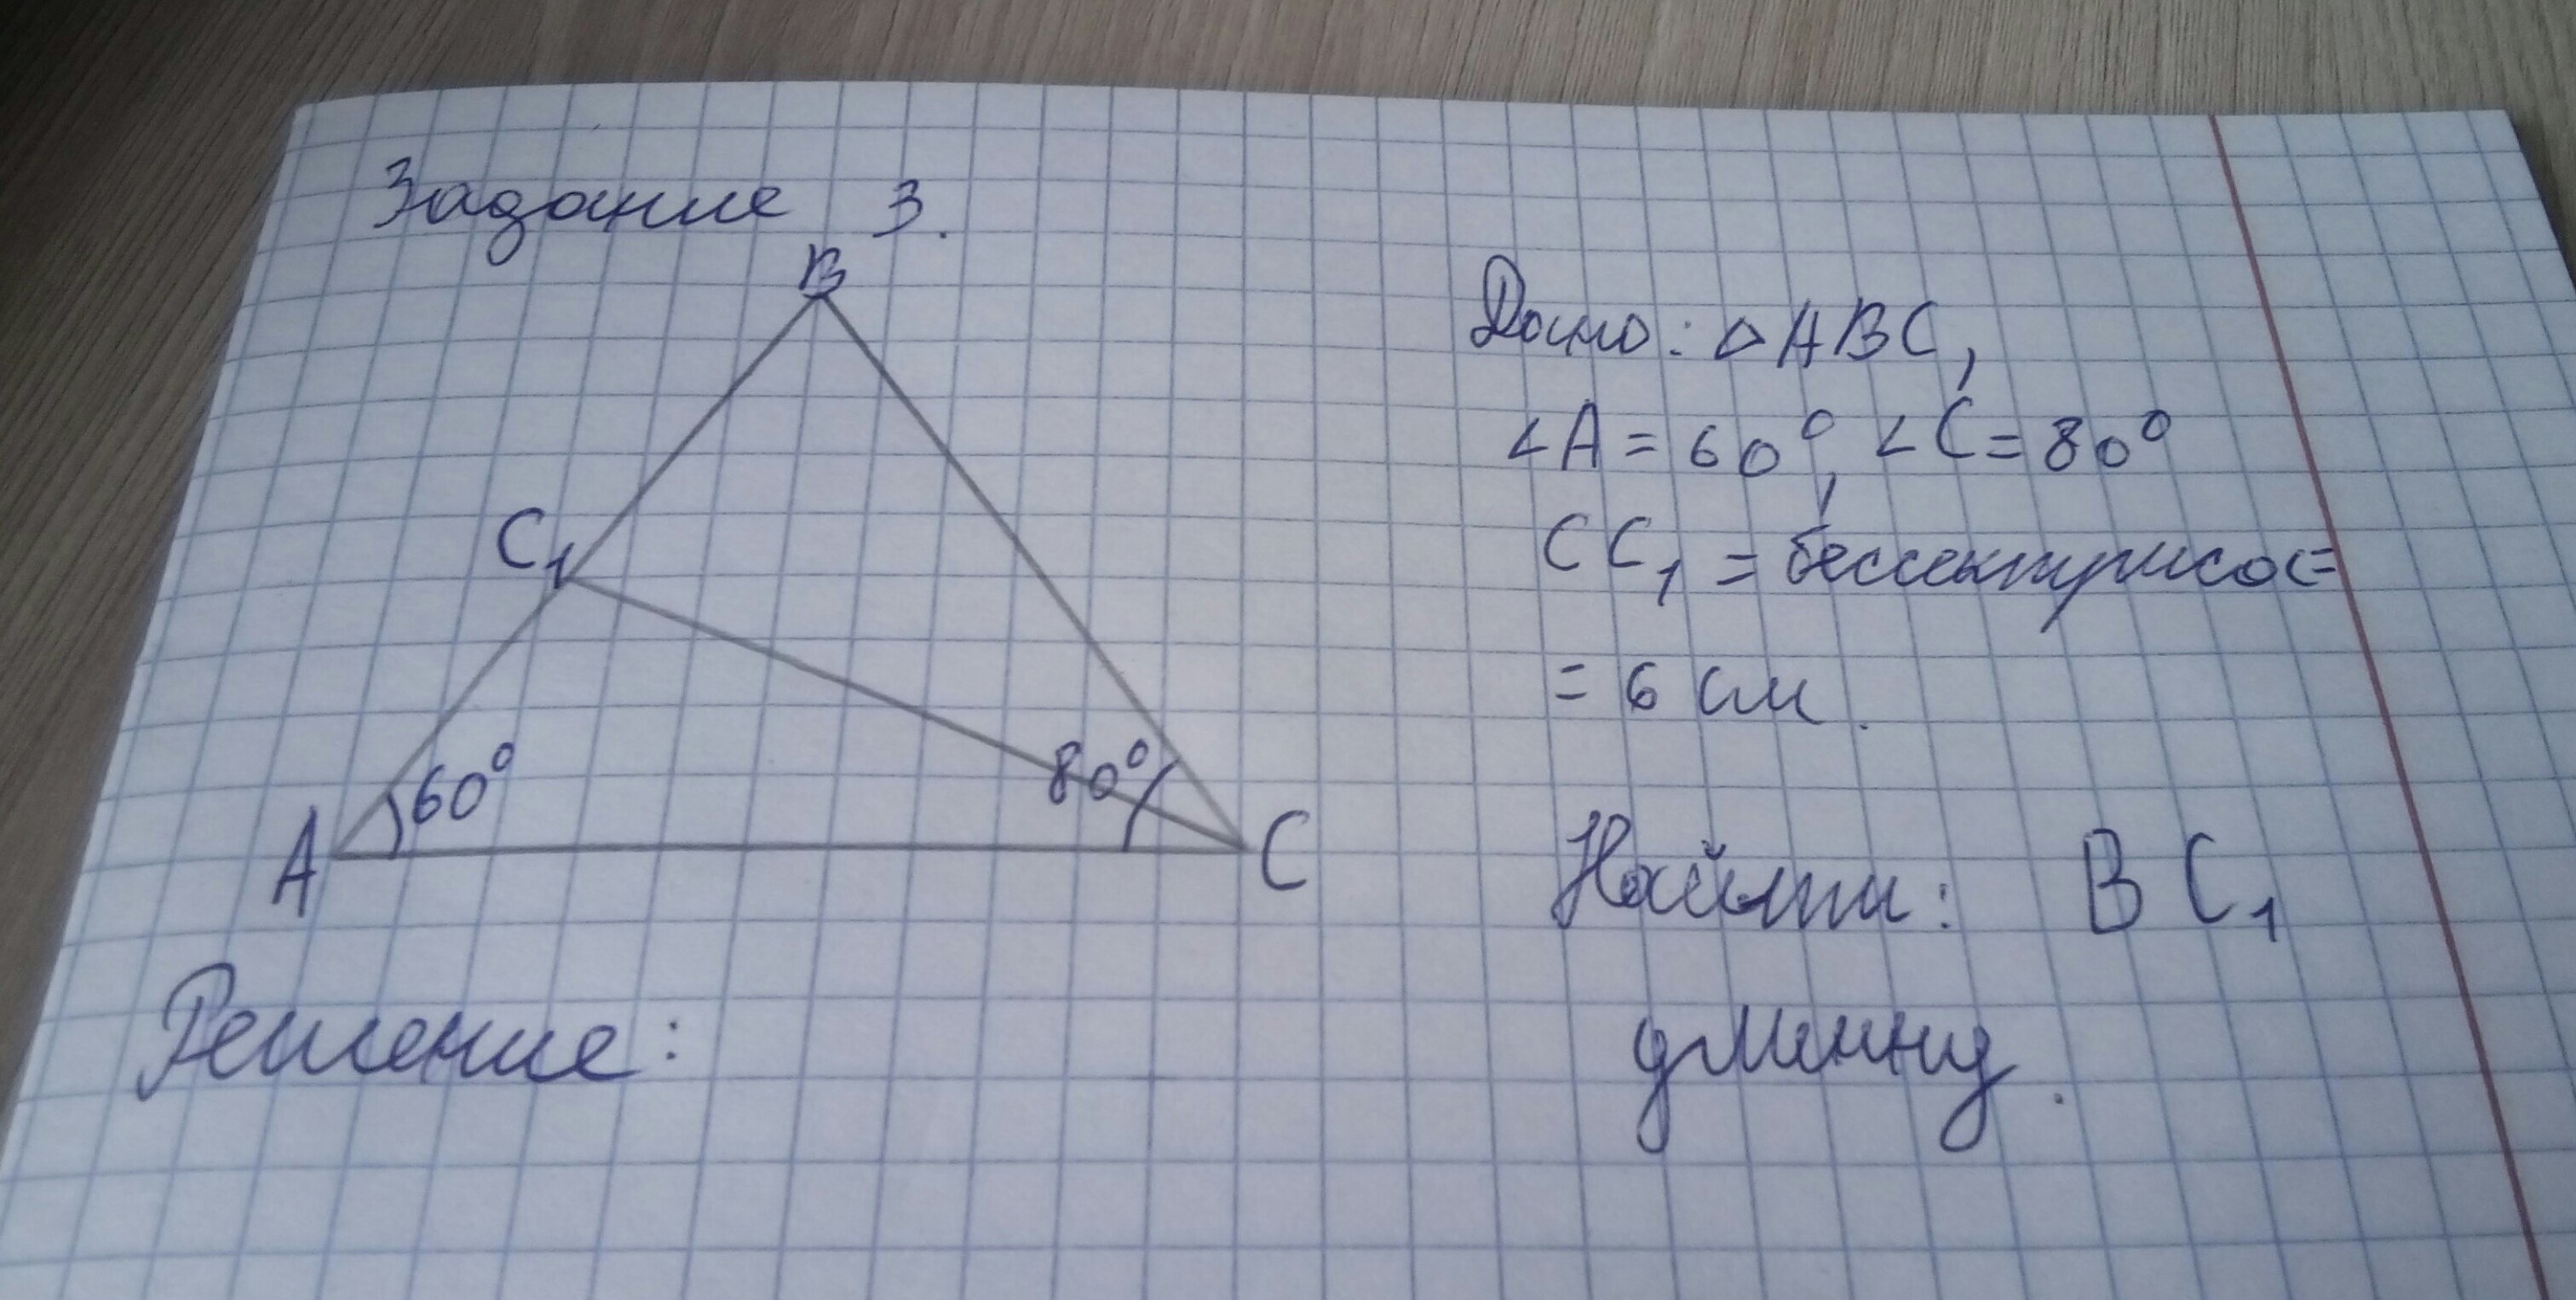 Задание 3.
B
C₁
60°
80°
A
C
Дано: △ABC,
∠A = 60°, ∠C = 80°
CC₁ = бессектриса =
= 6 см.
Найти: BC₁
длинну.
Решение: